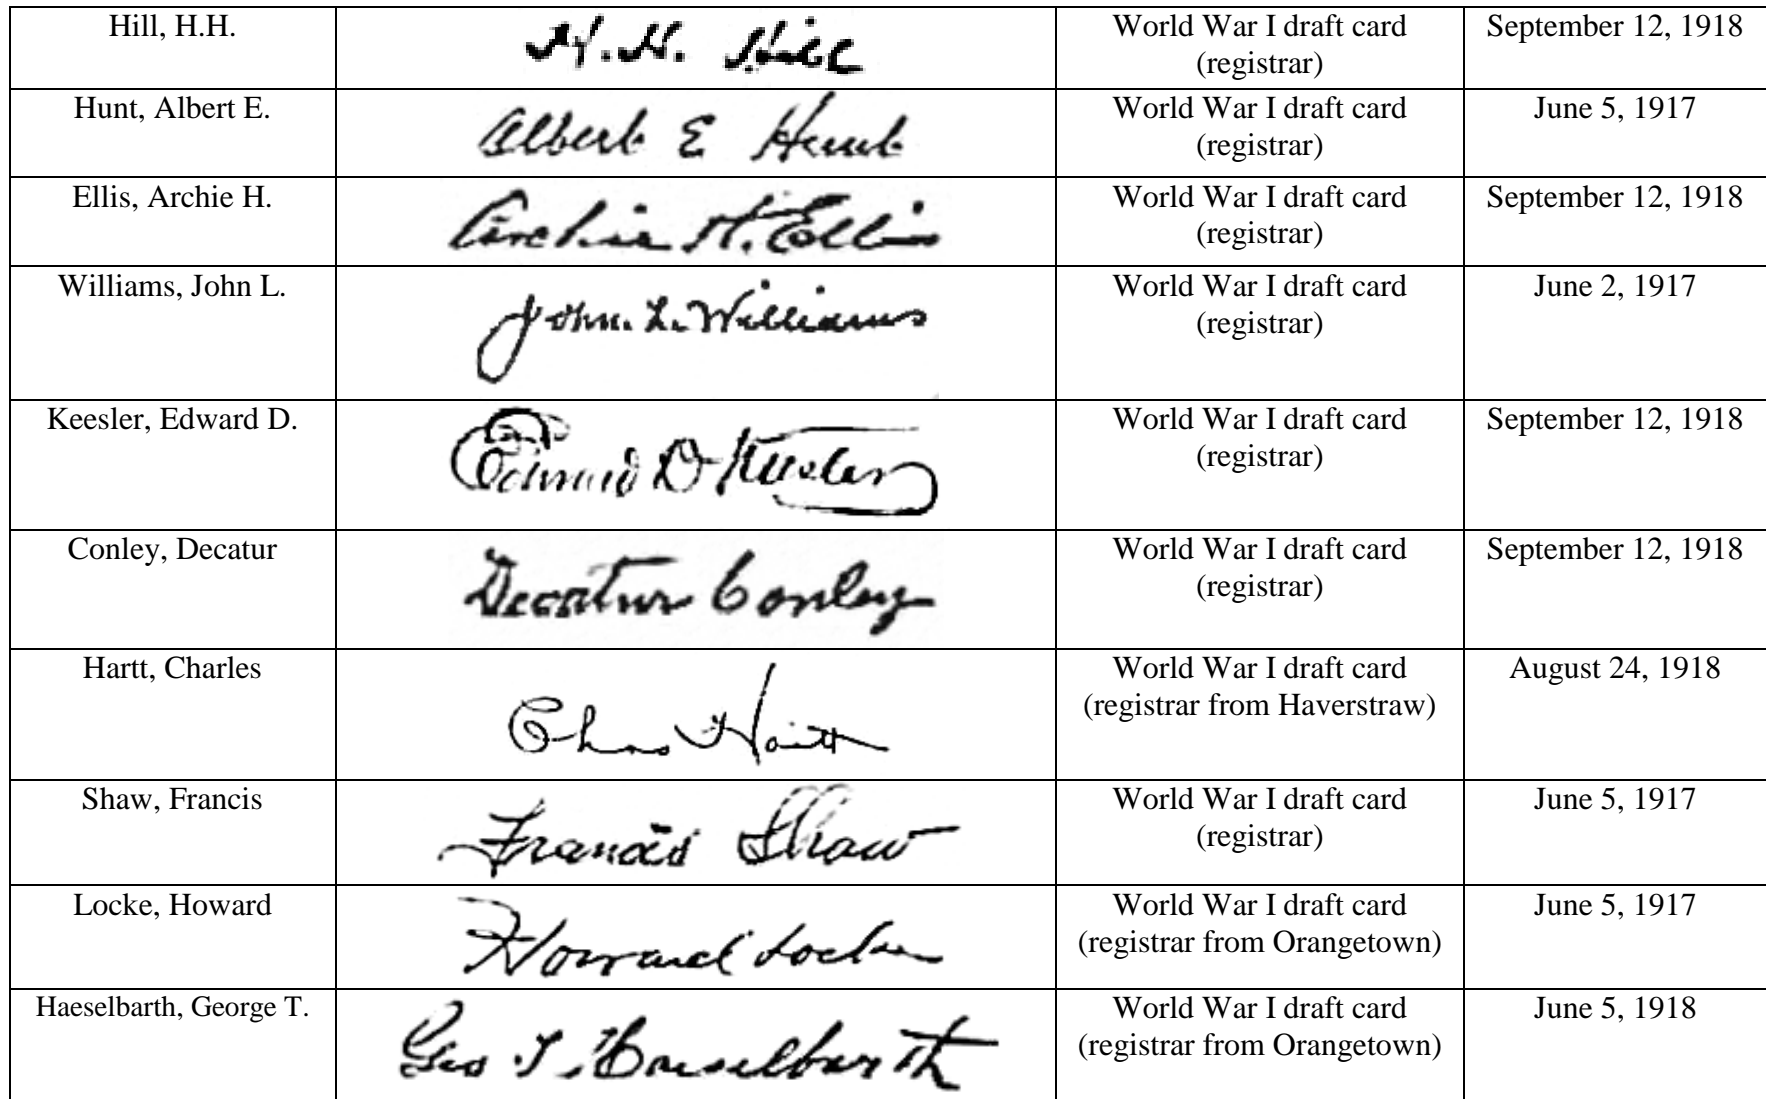 Hill, H.H.
H. H. Hill
World War I draft card
(registrar)
September 12, 1918
Hunt, Albert E.
Albert E Hunt
World War I draft card
(registrar)
June 5, 1917
Ellis, Archie H.
Archie H. Ellis
World War I draft card
(registrar)
September 12, 1918
Williams, John L.
John. L. Williams
World War I draft card
(registrar)
June 2, 1917
Keesler, Edward D.
Edward D Keesler
World War I draft card
(registrar)
September 12, 1918
Conley, Decatur
Decatur Conley
World War I draft card
(registrar)
September 12, 1918
Hartt, Charles
Chas Hartt
World War I draft card
(registrar from Haverstraw)
August 24, 1918
Shaw, Francis
Francis Shaw
World War I draft card
(registrar)
June 5, 1917
Locke, Howard
Howard Locke
World War I draft card
(registrar from Orangetown)
June 5, 1917
Haeselbarth, George T.
Geo T. Haeselbarth
World War I draft card
(registrar from Orangetown)
June 5, 1918